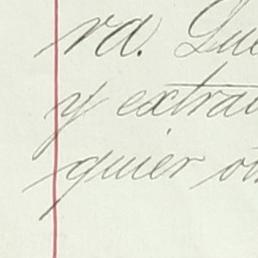 ra. Que
y extrai
quier ot